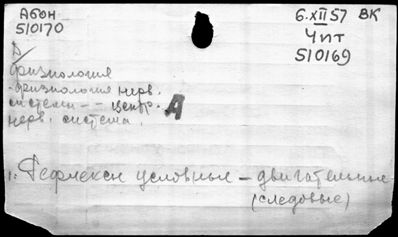 Абон
510170
6.XII 57 ВК
Чпт
510169
А
физиология
-физиология нерв.
системы -- центр.
нерв. система.
А
1. Рефлексы условные - двигательные
(следовые)